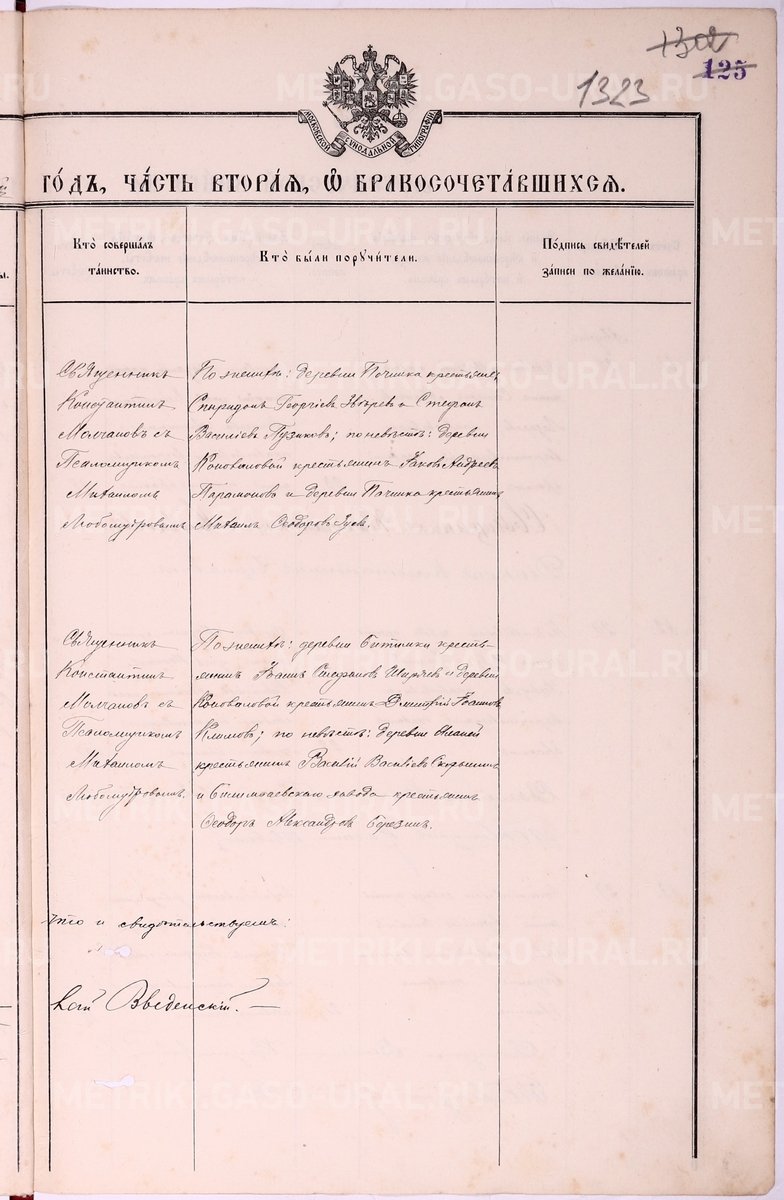 1302
125
1323
МОСКОВСКОЙ СѴНОДАЛЬНОЙ ТИПОГРАФІИ
го́дъ, ча́сть втора́я, ѡ҆ бракосочета́вшихся.
Кто̀ соверша́лъ
та́инство.
Кто̀ бы́ли поручи́тели.
По́дпись свидѣ́телей
за́писи по жела́нїю.
Священникъ
Константинъ
Молчановъ съ
Псаломщикомъ
Михаиломъ
Любомудровымъ
По женихѣ: деревни Починка крестьяне
Спиридонъ Георгіевъ Звѣревъ и Стефанъ
Василіевъ Пузиковъ; по невѣстѣ: деревни
Коноваловой крестьянинъ Іаковъ Андреевъ
Парамоновъ и деревни Починка крестьянинъ
Михаилъ Ѳеодоровъ
Священникъ
Константинъ
Молчановъ съ
Псаломщикомъ
Михаиломъ
Любомудровымъ.
По женихѣ: деревни Битимки кресть-
янинъ Іоаннъ Стефановъ Ширяевъ и деревни
Коноваловой крестьянинъ Димитрій Іоанновъ
Климовъ; по невѣстѣ: деревни
крестьянинъ Василій Василіевъ Скорынинъ
и Билимбаевскаго завода крестьянинъ
Ѳеодоръ Александровъ Березинъ.
что и свидѣтельствуемъ:
Введенскій.
METRIKI.GASO-URAL.RU